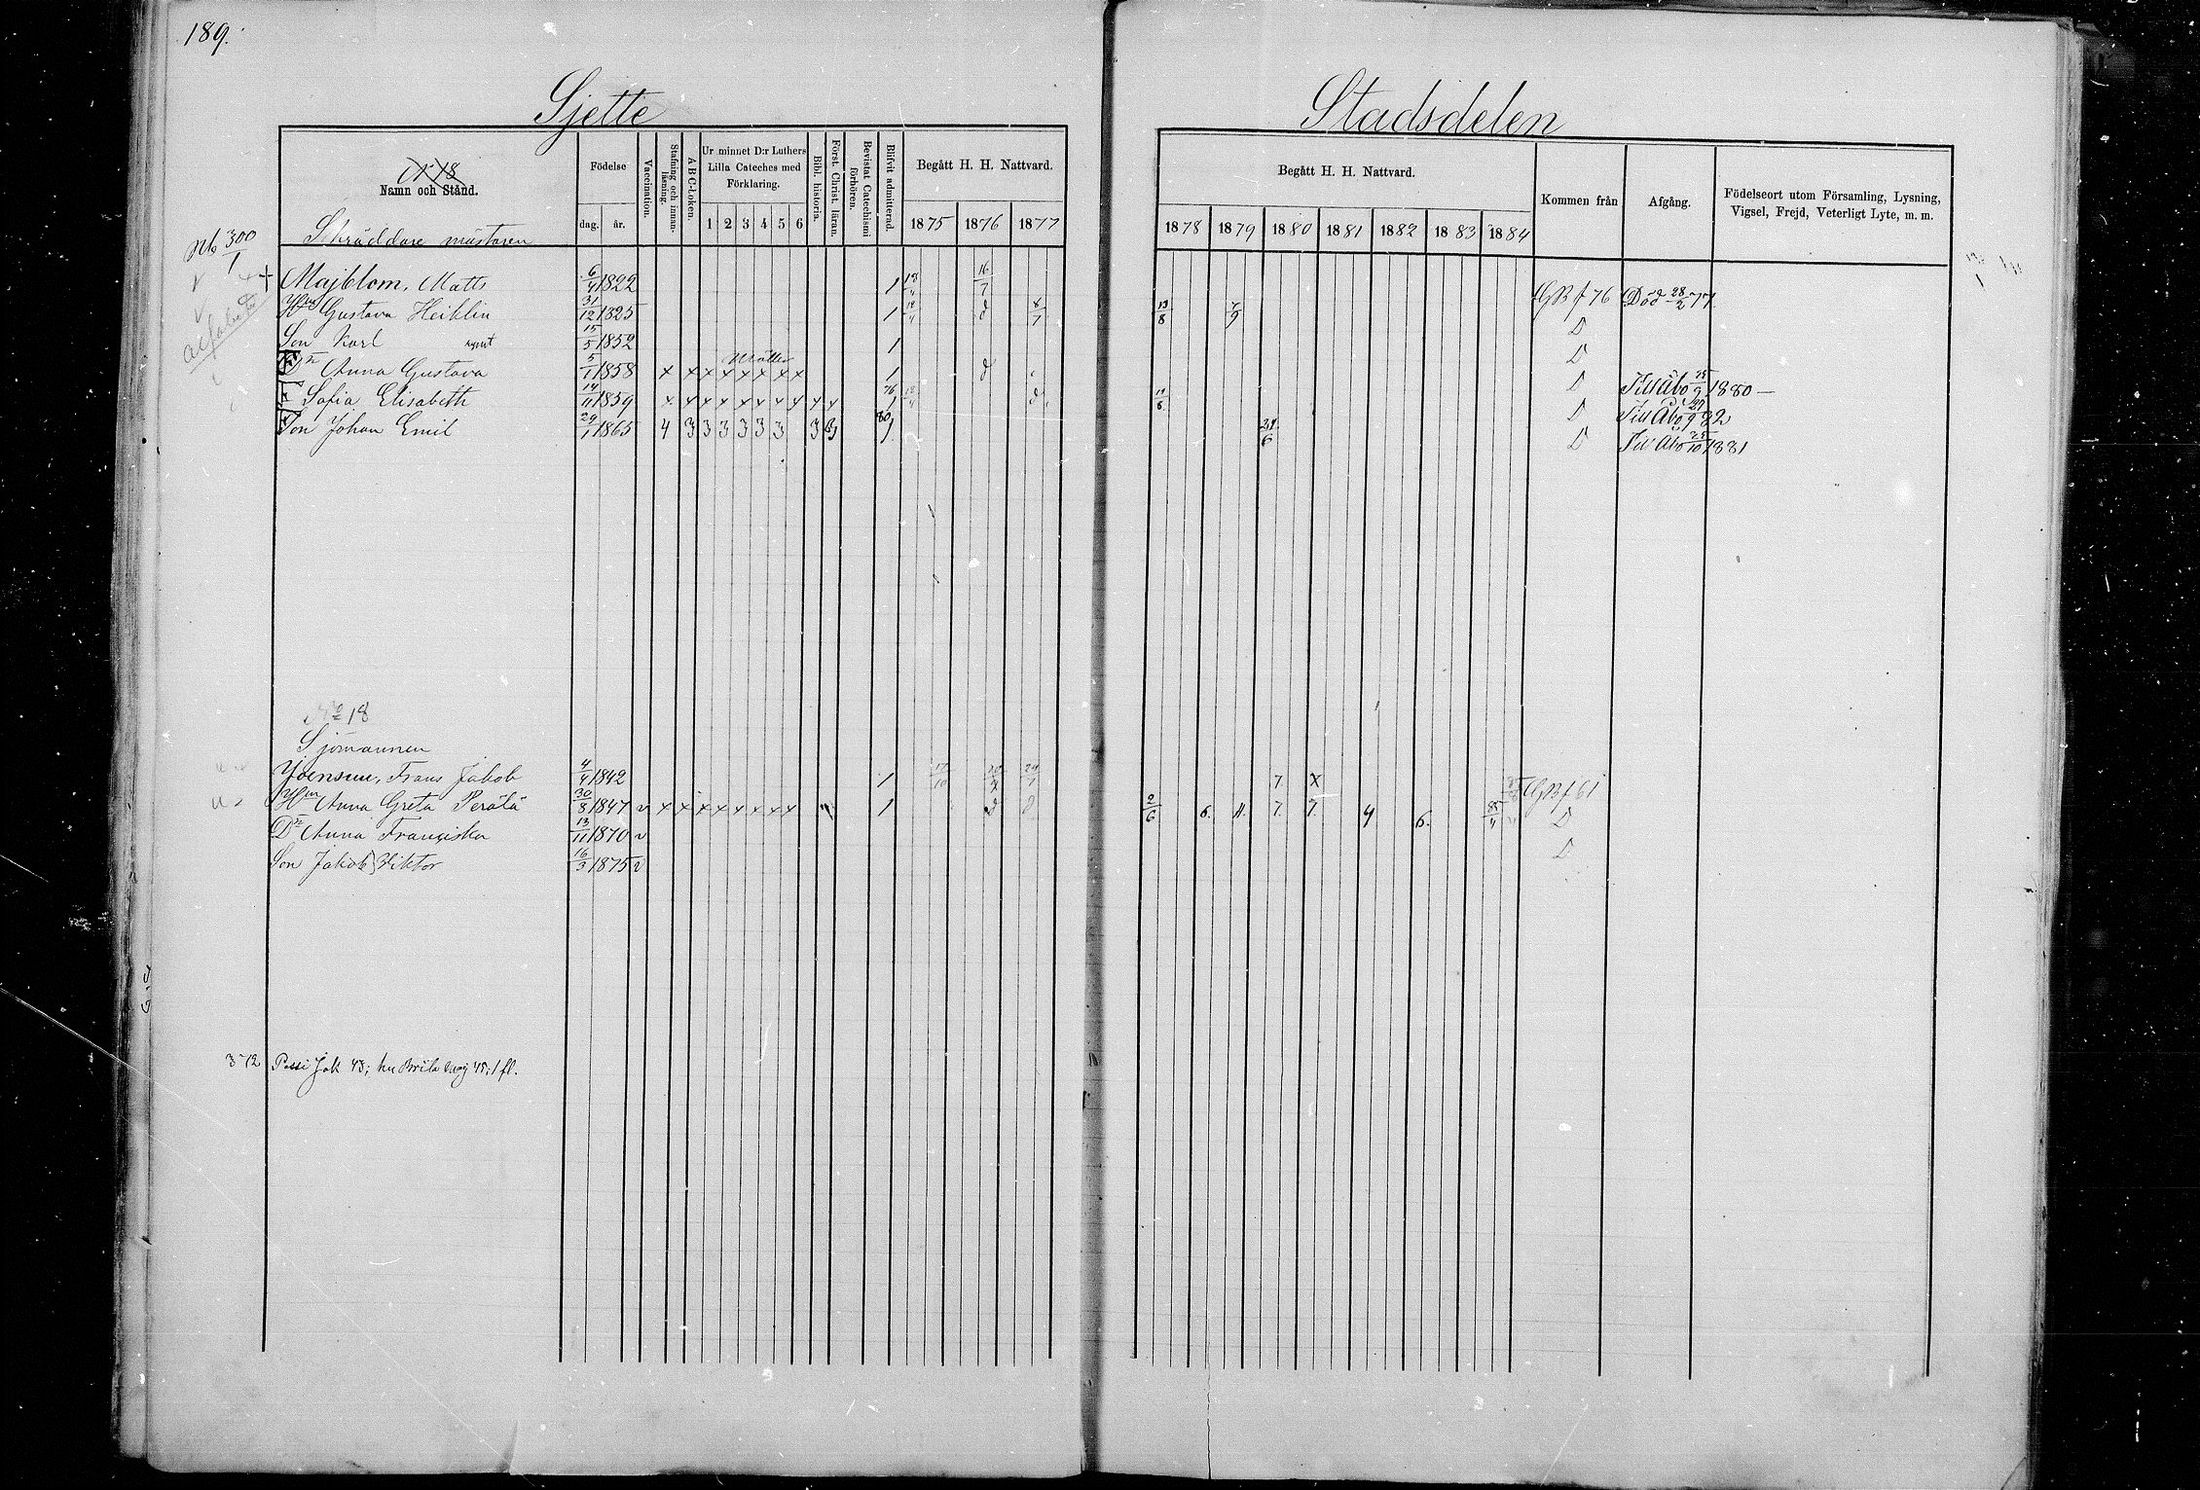 189.
Sjette Stadsdelen
N:o 18
Namn och Stånd.
Födelse
dag. år.
Vaccination.
Stafning och innan-läsning.
A B C-boken.
Ur minnet D:r Luthers Lilla Cateches med Förklaring.
1 2 3 4 5 6
Bibl. historia.
Först. Christ. läran.
Bevistat Catechismi förhören.
Blifvit admitterad.
Begått H. H. Nattvard.
1875 1876 1877
Begått H. H. Nattvard.
1878 1879 1880 1881 1882 1883 1884
Kommen från
Afgång.
Födelseort utom Församling, Lysning, Vigsel, Frejd, Veterligt Lyte, m. m.
Skräddare mästaren
300/1
+ Majblom, Matts 6/4 1822 1 18/4 16/7 GB f 76 Död 28/2 77
Hu Gustava Heiklin 31/12 1825 1 18/4 d 8/7 13/8 7/9 D
Son Karl 15/5 1852 1 D
Dr Anna Gustava 5/1 1858 x x x x x x x x 1 d D Till Åbo 25/9 1880 —
Sofia Elisabeth 14/11 1859 x x x x x x x x x x 76/1 18/4 d D Till Åbo 27/9 82
Son Johan Emil 29/1 1865 4 3 3 3 3 3 3 3 3 80/1 24/6 D Till Åbo 25/10 1881
alfabeta
No 18
Sjömannen
Yoensuu, Frans Jakob 4/4 1842 1 17/10 7 x GB f 61
Hu Anna Greta Perälä 30/8 1847 v x x x x x x x x 1 d d 2/6 6. 11. 7. 7. 9 6. 85/4 D
Dr Anna Franciska 13/11 1870 v D
Son Jakob Viktor 16/3 1875 v
372 Possi Jak 43; hu Brita Maj 45; 1 fl.